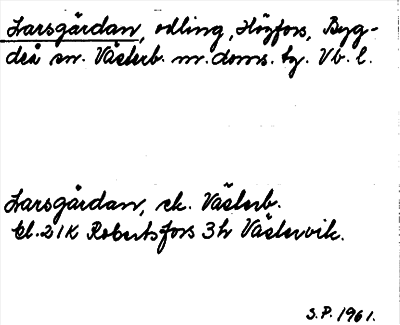 Larsgårdan, odling, Högfors, Byg-
deå sn. Västerb. n. doms. tg. Vb. l.
Larsgårdan, ek. Västerb.
bl. 21K Robertsfors 3h Västervik.
S.P. 1961.